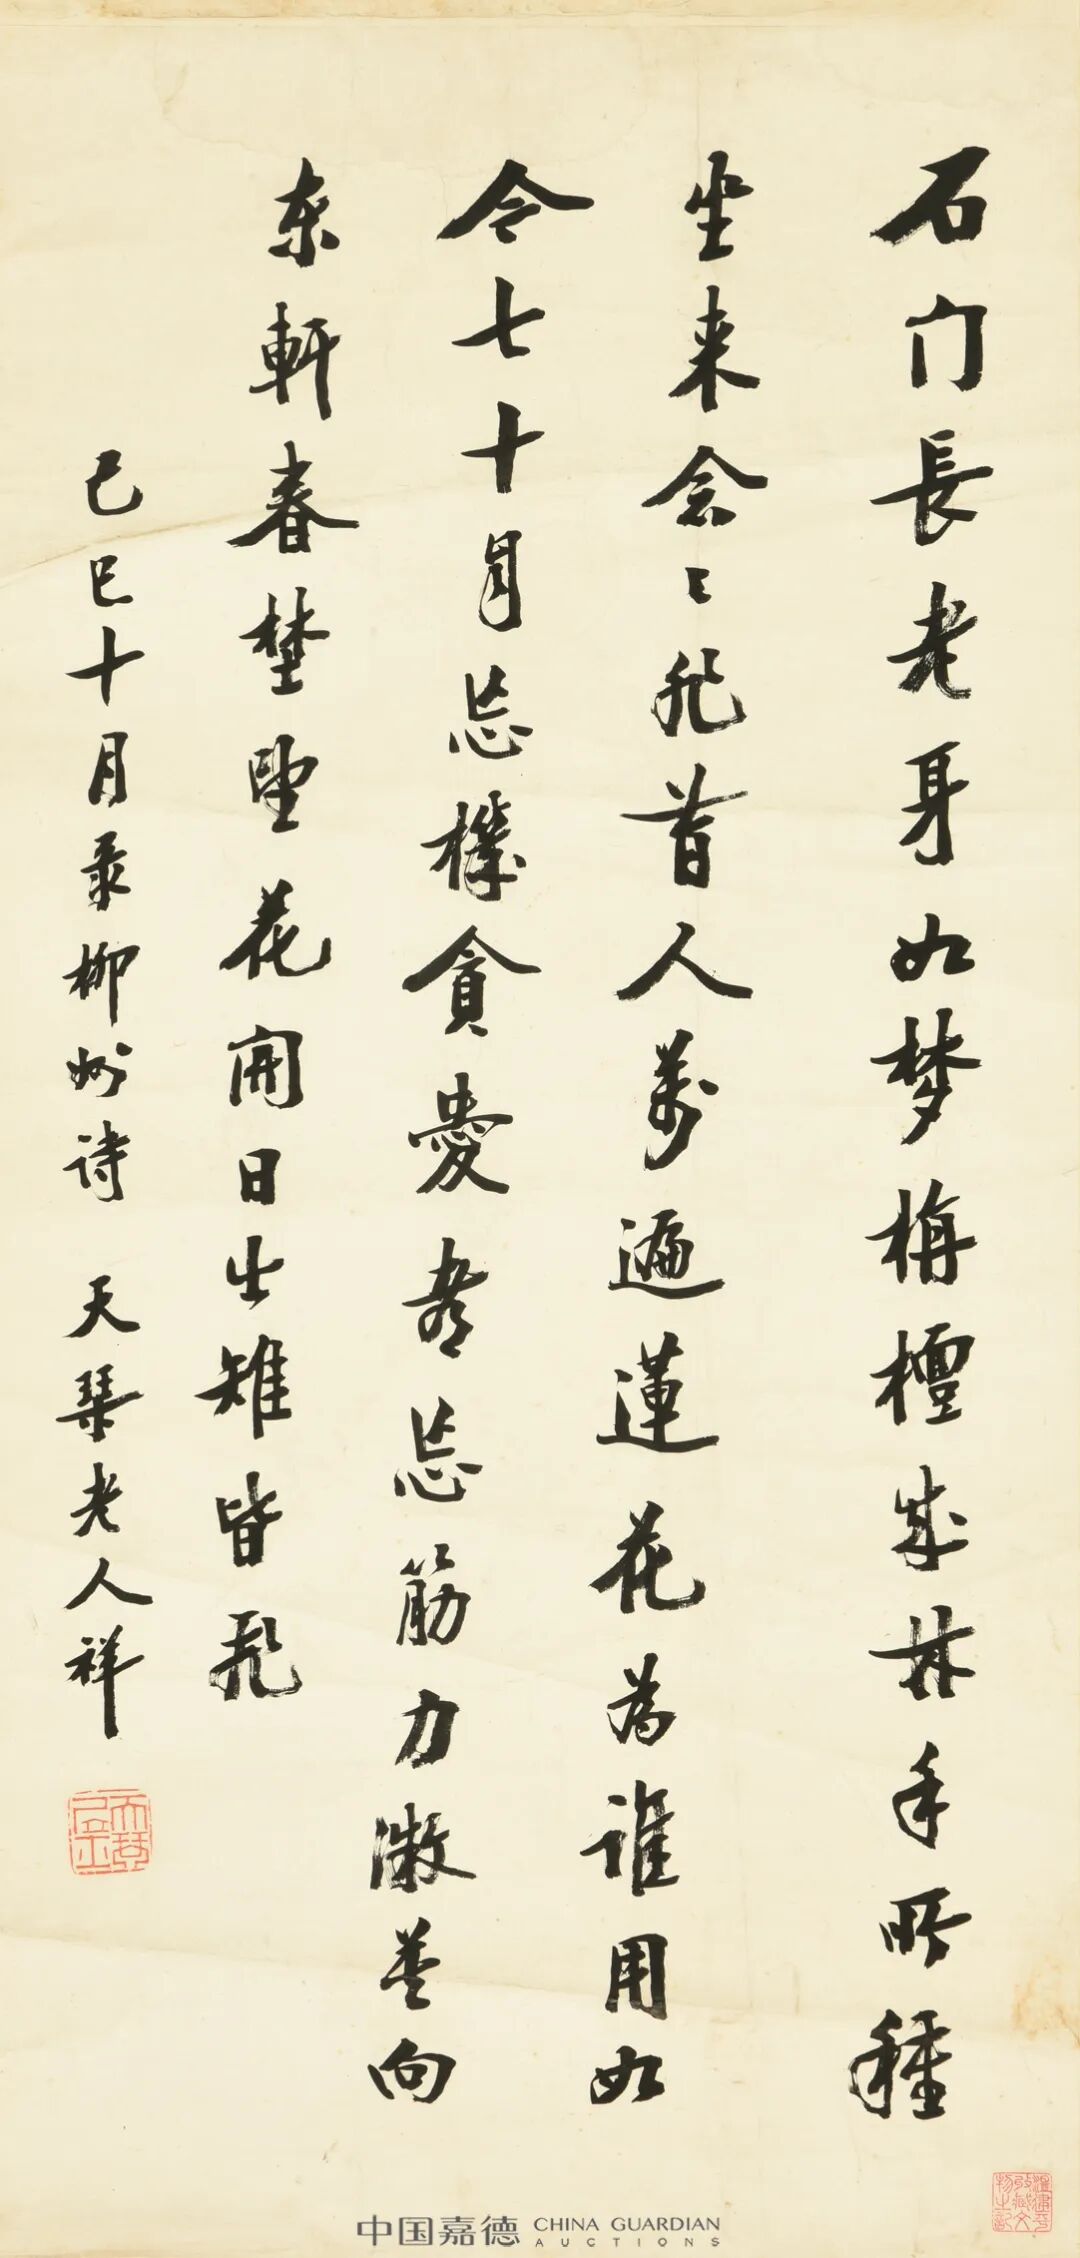 石门長老身如梦栴檀成林手所種
坐来念〻非昔人万遍蓮花为誰用如
今七十自忘機貪愛都忘筋力微莫向
东軒春埜望花開日出雉皆飛
己巳十月录柳州诗 天琴老人祥
中国嘉德 CHINA GUARDIAN
AUCTIONS